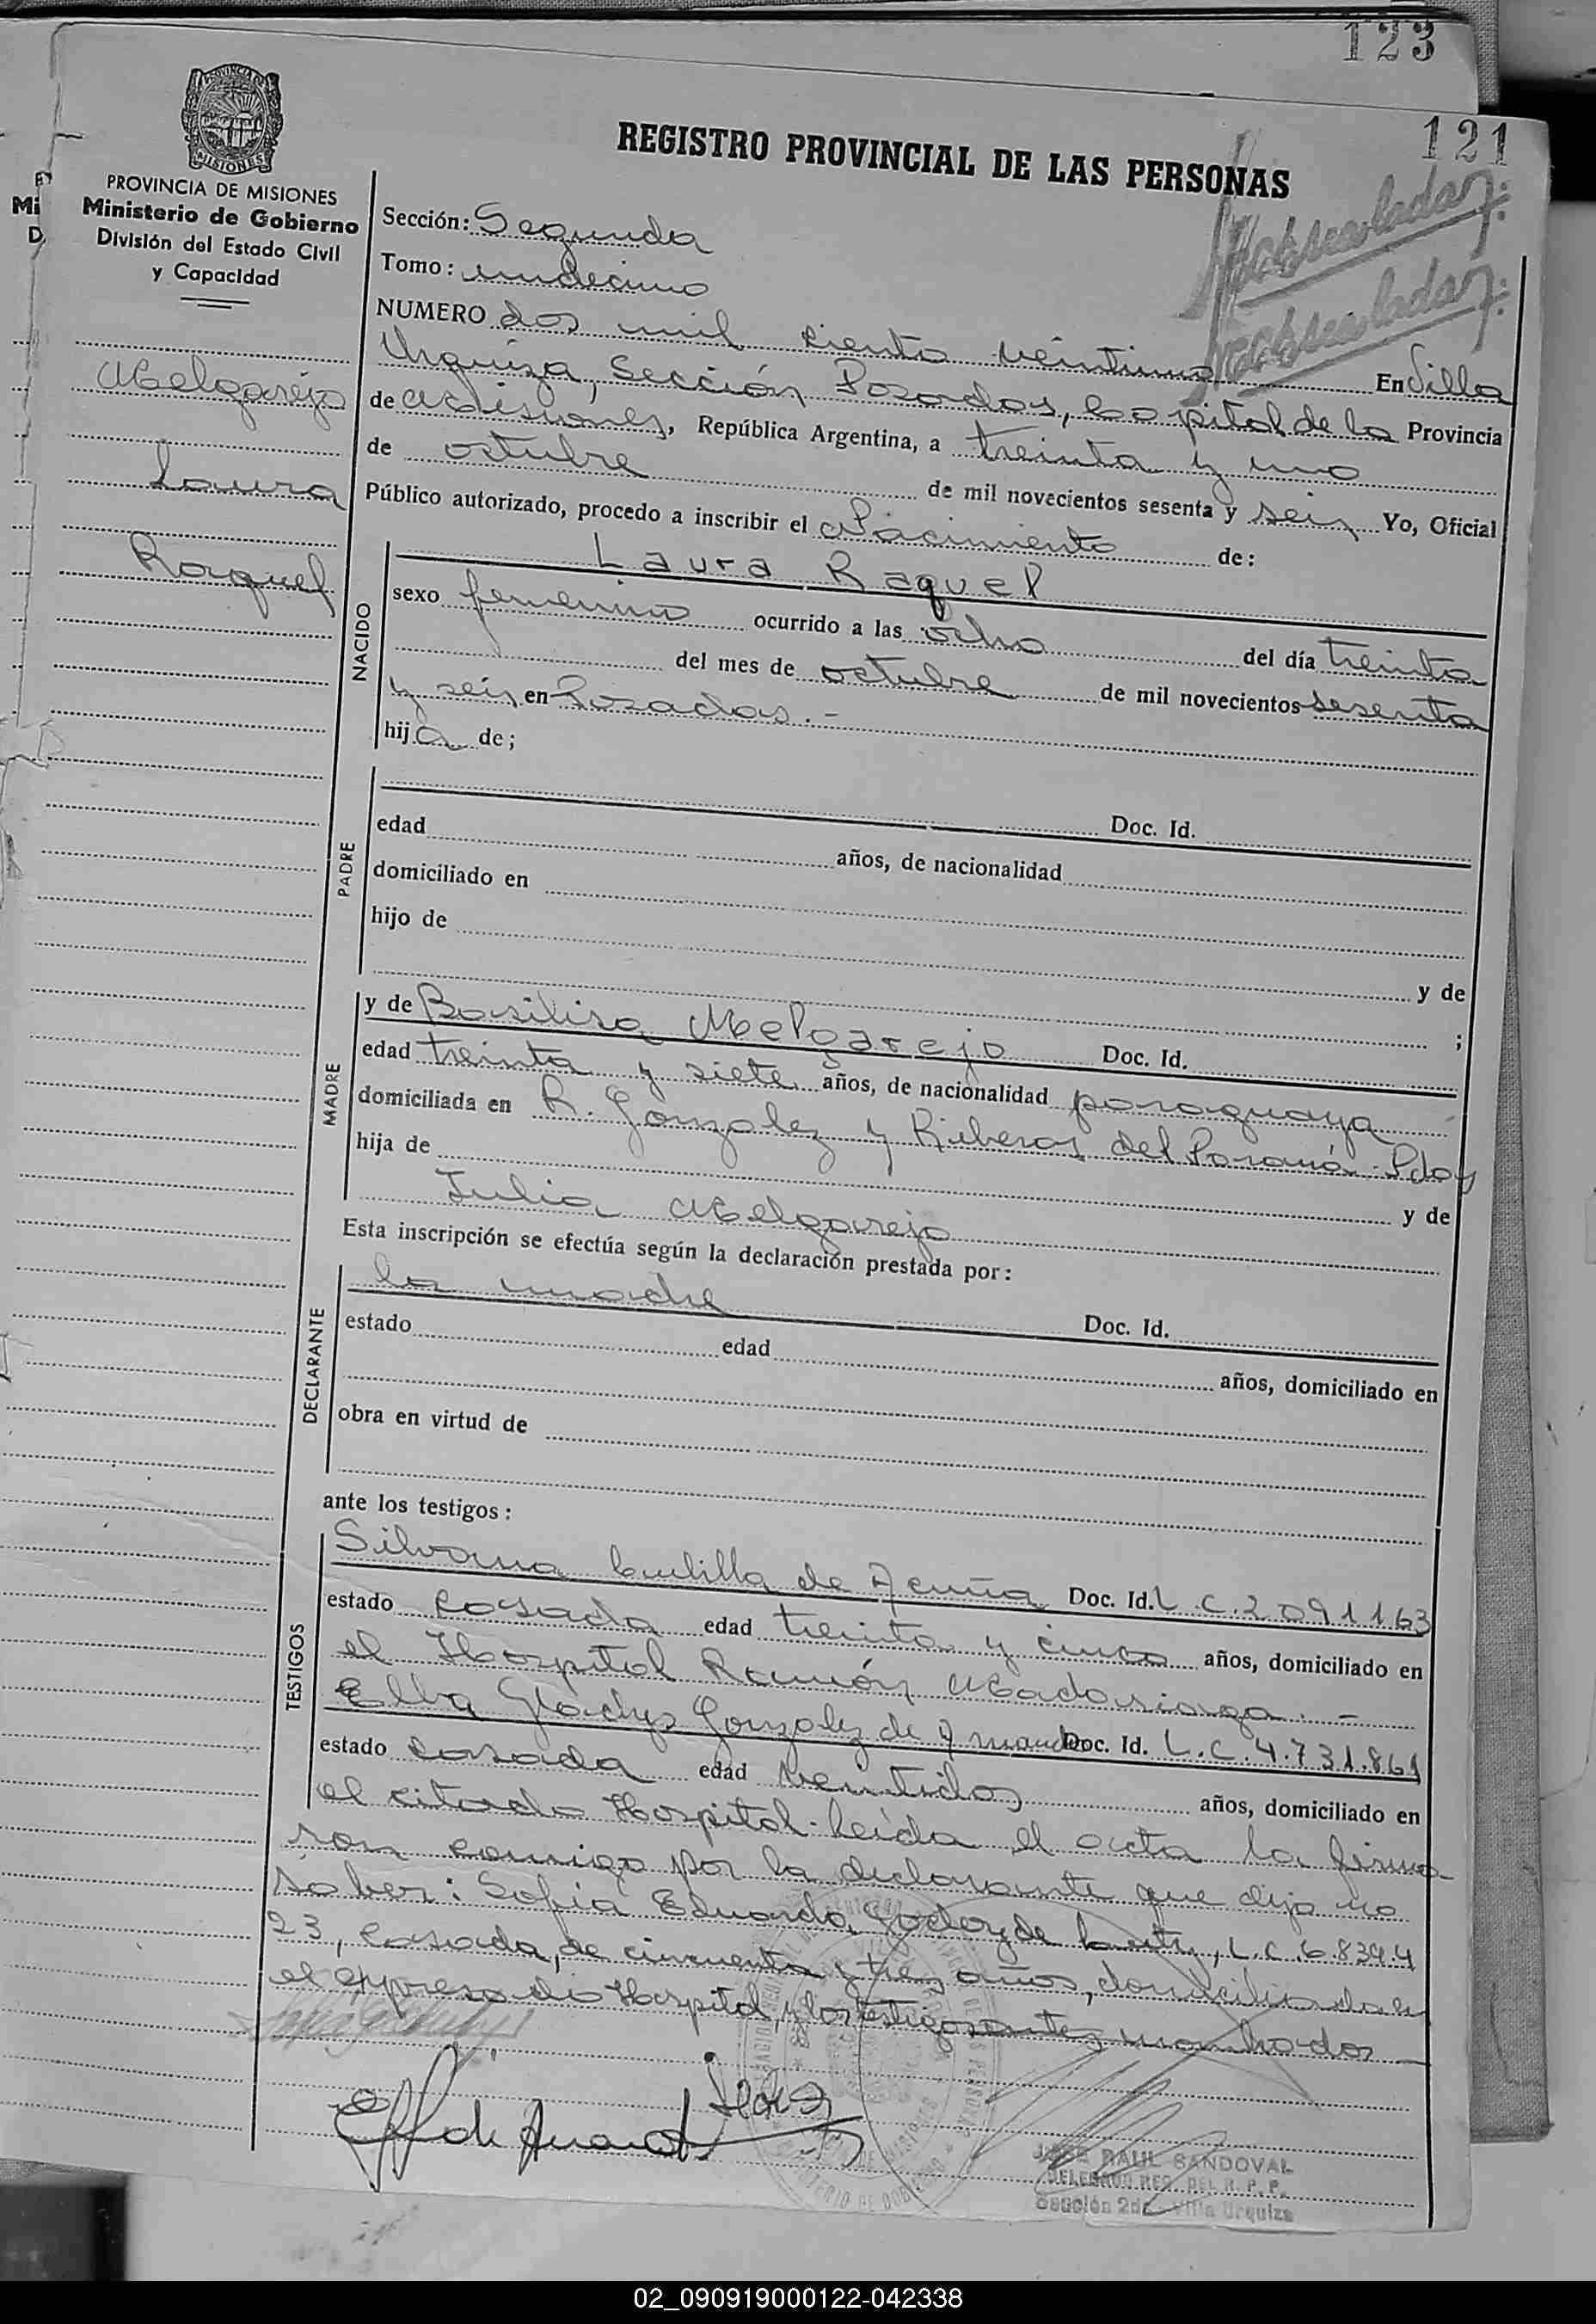 123
121
REGISTRO PROVINCIAL DE LAS PERSONAS
PROVINCIA DE MISIONES
Ministerio de Gobierno
División del Estado Civil
y Capacidad
Melgarejo
Laura
Raquel
Sección: Segunda
Tomo: undecimo
NUMERO dos mil ciento veintiuno En Villa
Urquiza, Sección Posadas, Capital de la Provincia
de Misiones, República Argentina, a treinta y uno
de octubre de mil novecientos sesenta y seis Yo, Oficial
Público autorizado, procedo a inscribir el Nacimiento de:
NACIDO
Laura Raquel
sexo femenino ocurrido a las ocho del día treinta
del mes de octubre de mil novecientos sesenta
y seis en Posadas.-
hija de;
PADRE
Doc. Id.
edad años, de nacionalidad
domiciliado en
hijo de
y de
;
MADRE
y de Basilisa Melgarejo Doc. Id.
edad treinta y siete años, de nacionalidad paraguaya
domiciliada en R. Gonzalez y Riberas del Paraná - Pdas
hija de
y de
Julia Melgarejo
Esta inscripción se efectúa según la declaración prestada por:
DECLARANTE
la madre Doc. Id.
estado edad años, domiciliado en
obra en virtud de
ante los testigos:
TESTIGOS
Silvana de Acuña Doc. Id. L.C. 2091163
estado casada edad treinta y cinco años, domiciliado en
el Hospital Ramón Madariaga. -
Elba Gladys Gonzalez de Doc. Id. L.C. 4.731.861
estado casada edad veintidos años, domiciliado en
el citado Hospital. Leída el acta la firma-
ron conmigo por la declarante que dijo no
saber: Sofia Eduarda Godoy de L.C. 6.839.4
23, casada, de cincuenta y tres años, domiciliada en
el expresado Hospital y los testigos antes nombrados
JOSE RAUL SANDOVAL
DELEGADO RES. DEL R. P. P.
Sección 2da - Villa Urquiza
02_090919000122-042338